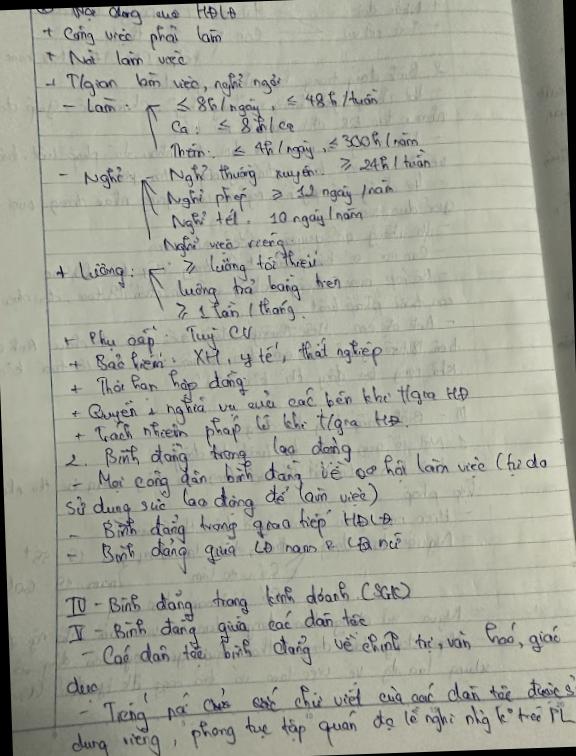 Nội dung của HĐLĐ
+ Công việc phải làm
+ Nơi làm việc
+ T/gian làm việc, nghỉ ngơi
- Làm: ≤ 8h/ngày, ≤ 48h/tuần
Ca: ≤ 8h/ca
Thêm: ≤ 4h/ngày, ≤ 300h/năm
- Nghỉ: Nghỉ thường xuyên: ≥ 24h/tuần
Nghỉ phép ≥ 12 ngày/năm
Nghỉ tết: 10 ngày/năm
Nghỉ việc riêng
+ Lương: ≥ lương tối thiểu
lương trả bằng tiền
≥ 1 lần/tháng.
+ Phụ cấp: Tuỳ CV
+ Bảo hiểm: XH, y tế, thất nghiệp
+ Thời hạn hợp đồng
+ Quyền & nghĩa vụ của các bên khi t/gia HĐ
+ Trách nhiệm pháp lí khi t/gia HĐ.
2. Bình đẳng trong lao động
- Mọi công dân bình đẳng về cơ hội làm việc (tự do
sử dụng sức lao động để làm việc)
- Bình đẳng trong giao tiếp HĐLĐ
- Bình đẳng giữa LĐ nam & LĐ nữ
IV - Bình đẳng trong kinh doanh (SGK)
V - Bình đẳng giữa các dân tộc
- Các dân tộc bình đẳng về chính trị, văn hoá, giáo
dục
- Tiếng nói chữ viết của các dân tộc được sử
dụng riêng, phong tục tập quán lễ nghi trái PL